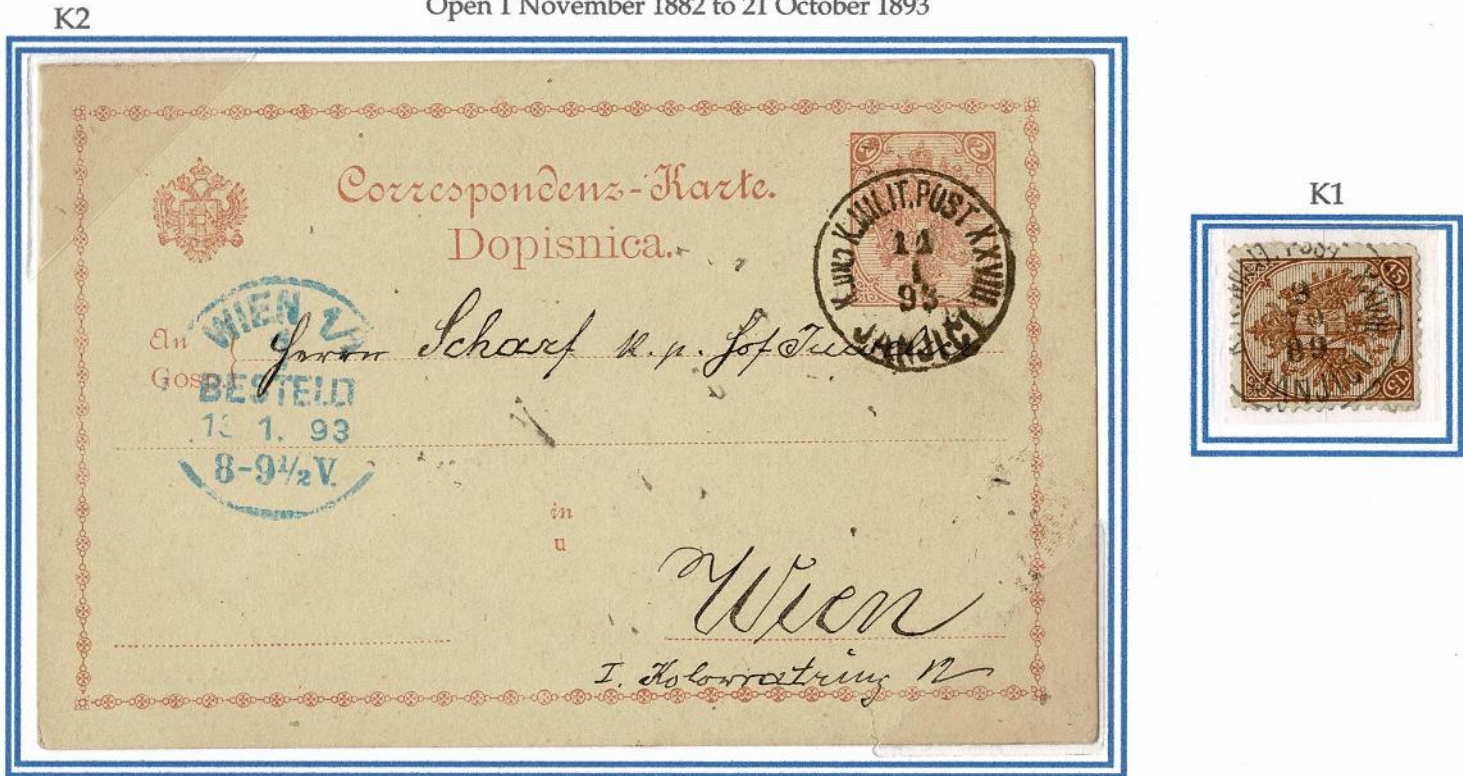 Open 1 November 1882 to 21 October 1893
K2
Correspondenz-Karte.
Dopisnica.
2
K. UND K. MILIT. POST XXVIII
11
I
93
JANJICI
WIEN 1/1
BESTELLT
13 1. 93
8-9 1/2 V.
An
Gosp.
Herrn Scharf k. p. Hof
in
u
Wien
I. Kolowratring 12
K1
15
89
JANJICI
15